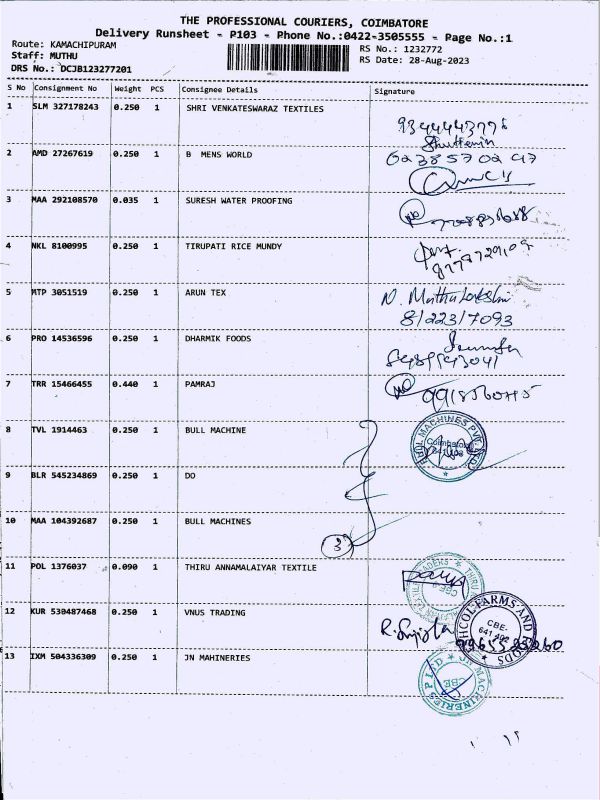 THE PROFESSIONAL COURIERS, COIMBATORE
Delivery Runsheet - P103 - Phone No.:0422-3505555 - Page No.:1
Route: KAMACHIPURAM
Staff: MUTHU
DRS No.: DCJB123277201
RS No.: 1232772
RS Date: 28-Aug-2023
S No Consignment No Weight PCS Consignee Details Signature
1 SLM 327178243 0.250 1 SHRI VENKATESWARAZ TEXTILES
2 AMD 27267619 0.250 1 B MENS WORLD
3 MAA 292108570 0.035 1 SURESH WATER PROOFING
4 NKL 8100995 0.250 1 TIRUPATI RICE MUNDY
5 MTP 3051519 0.250 1 ARUN TEX
N. Muthu Lakshmi
8/223/7093
6 PRO 14536596 0.250 1 DHARMIK FOODS
7 TRR 15466455 0.440 1 PAMRAJ
8 TVL 1914463 0.250 1 BULL MACHINE
MACHINES PVT. LTD.
Coimbatore
9 BLR 545234869 0.250 1 DO
10 MAA 104392687 0.250 1 BULL MACHINES
3
11 POL 1376037 0.090 1 THIRU ANNAMALAIYAR TEXTILE
CBE
12 KUR 530487468 0.250 1 VNUS TRADING
R. Sujitha
FARMS AND FOODS
CBE-
641 402
13 IXM 504336309 0.250 1 JN MAHINERIES
JN MACHINERIES P LTD
CBE